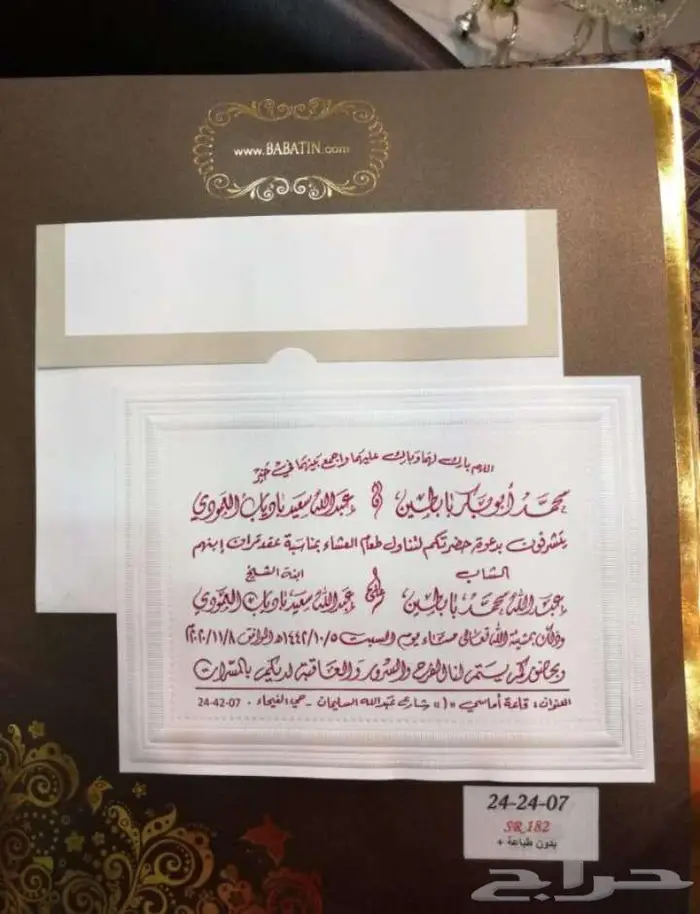 www.BABATIN.com
اللهم بارك لهما وبارك عليهما واجمع بينهما في خير
محمد أبوبكر باطين و عبدالله سعيد باذياب العمودي
يتشرفون بدعوة حضرتكم لتناول طعام العشاء بمناسبة عقد قران إبنهم
الشاب ابنة الشيخ
عبدالله محمد باطين على عبدالله سعيد باذياب العمودي
وذلك بمشيئة الله تعالى مساء يوم السبت ١٤٤٢/١٠/٥هـ الموافق ٢٠٢٠/١١/٨
وبحضوركم يتم لنا الفرح والسرور والعاقبة لديكم بالمسرات
العنوان : قاعة أماسي "١" شارع عبدالله السليمان - حي الفيحاء . 24-42-07
24-24-07
SR 182
بدون طباعة +
حراج